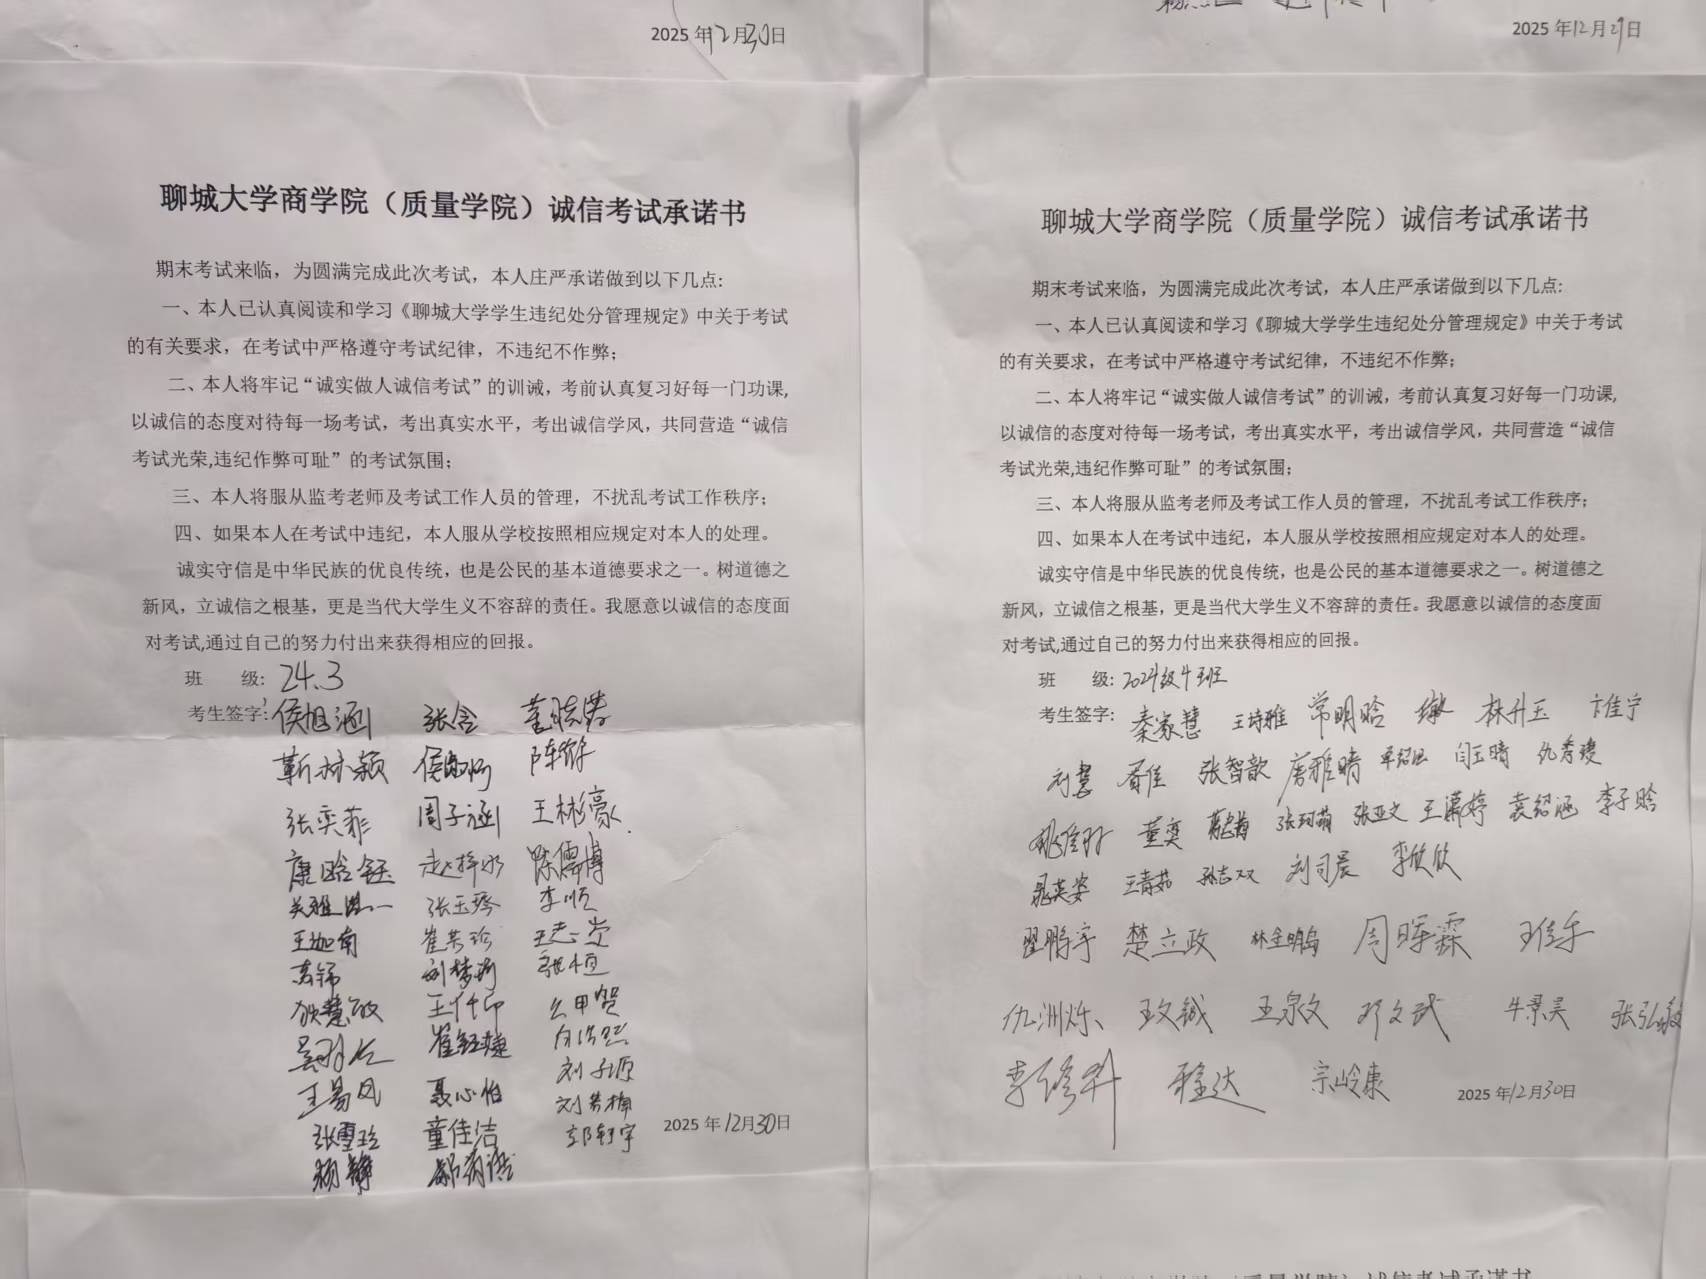 2025 年12月30日
2025 年12月29日
聊城大学商学院（质量学院）诚信考试承诺书
期末考试来临，为圆满完成此次考试，本人庄严承诺做到以下几点:
一、本人已认真阅读和学习《聊城大学学生违纪处分管理规定》中关于考试
的有关要求，在考试中严格遵守考试纪律，不违纪不作弊；
二、本人将牢记“诚实做人诚信考试”的训诫，考前认真复习好每一门功课,
以诚信的态度对待每一场考试，考出真实水平，考出诚信学风，共同营造“诚信
考试光荣,违纪作弊可耻”的考试氛围；
三、本人将服从监考老师及考试工作人员的管理，不扰乱考试工作秩序；
四、如果本人在考试中违纪，本人服从学校按照相应规定对本人的处理。
诚实守信是中华民族的优良传统，也是公民的基本道德要求之一。树道德之
新风，立诚信之根基，更是当代大学生义不容辞的责任。我愿意以诚信的态度面
对考试,通过自己的努力付出来获得相应的回报。
班 级: 24.3
考生签字: 侯旭涵 张念
张奕菲 周子涵 王彬豪
康晗钰 赵梓冰 陈儒博
张玉琴 李顺
王迦南 崔芳珍 王志堂
苏锦 刘梦珂 张恒
狄慧敏 王仆印 么甲贺
崔钰婕
刘子源
王易风 聂心怡 刘芳梅
张雪玲 童佳洁 郭轩宇
2025 年12月30日
杨静
聊城大学商学院（质量学院）诚信考试承诺书
期末考试来临，为圆满完成此次考试，本人庄严承诺做到以下几点:
一、本人已认真阅读和学习《聊城大学学生违纪处分管理规定》中关于考试
的有关要求，在考试中严格遵守考试纪律，不违纪不作弊；
二、本人将牢记“诚实做人诚信考试”的训诫，考前认真复习好每一门功课,
以诚信的态度对待每一场考试，考出真实水平，考出诚信学风，共同营造“诚信
考试光荣,违纪作弊可耻”的考试氛围；
三、本人将服从监考老师及考试工作人员的管理，不扰乱考试工作秩序；
四、如果本人在考试中违纪，本人服从学校按照相应规定对本人的处理。
诚实守信是中华民族的优良传统，也是公民的基本道德要求之一。树道德之
新风，立诚信之根基，更是当代大学生义不容辞的责任。我愿意以诚信的态度面
对考试,通过自己的努力付出来获得相应的回报。
班 级: 2024级4班
考生签字: 秦家慧 王诗雅 常明晗 林升玉 卞佳宁
刘慧 胥佳 张智歆 唐雅晴 闫玉晴 仇秀婕
董奕 张珂萌 张亚文 王潇婷 袁绍涵 李子晗
晁英姿 王青茹 孙志双 刘司晨 李欣欣
翟鹏宇 楚立政 林金鹏 周晖霖 王佳乐
仇洲烁 王文钺 王泉文 邓文武 牛景昊 张弘毅
李修科 程达 宗岭康 2025 年12月30日